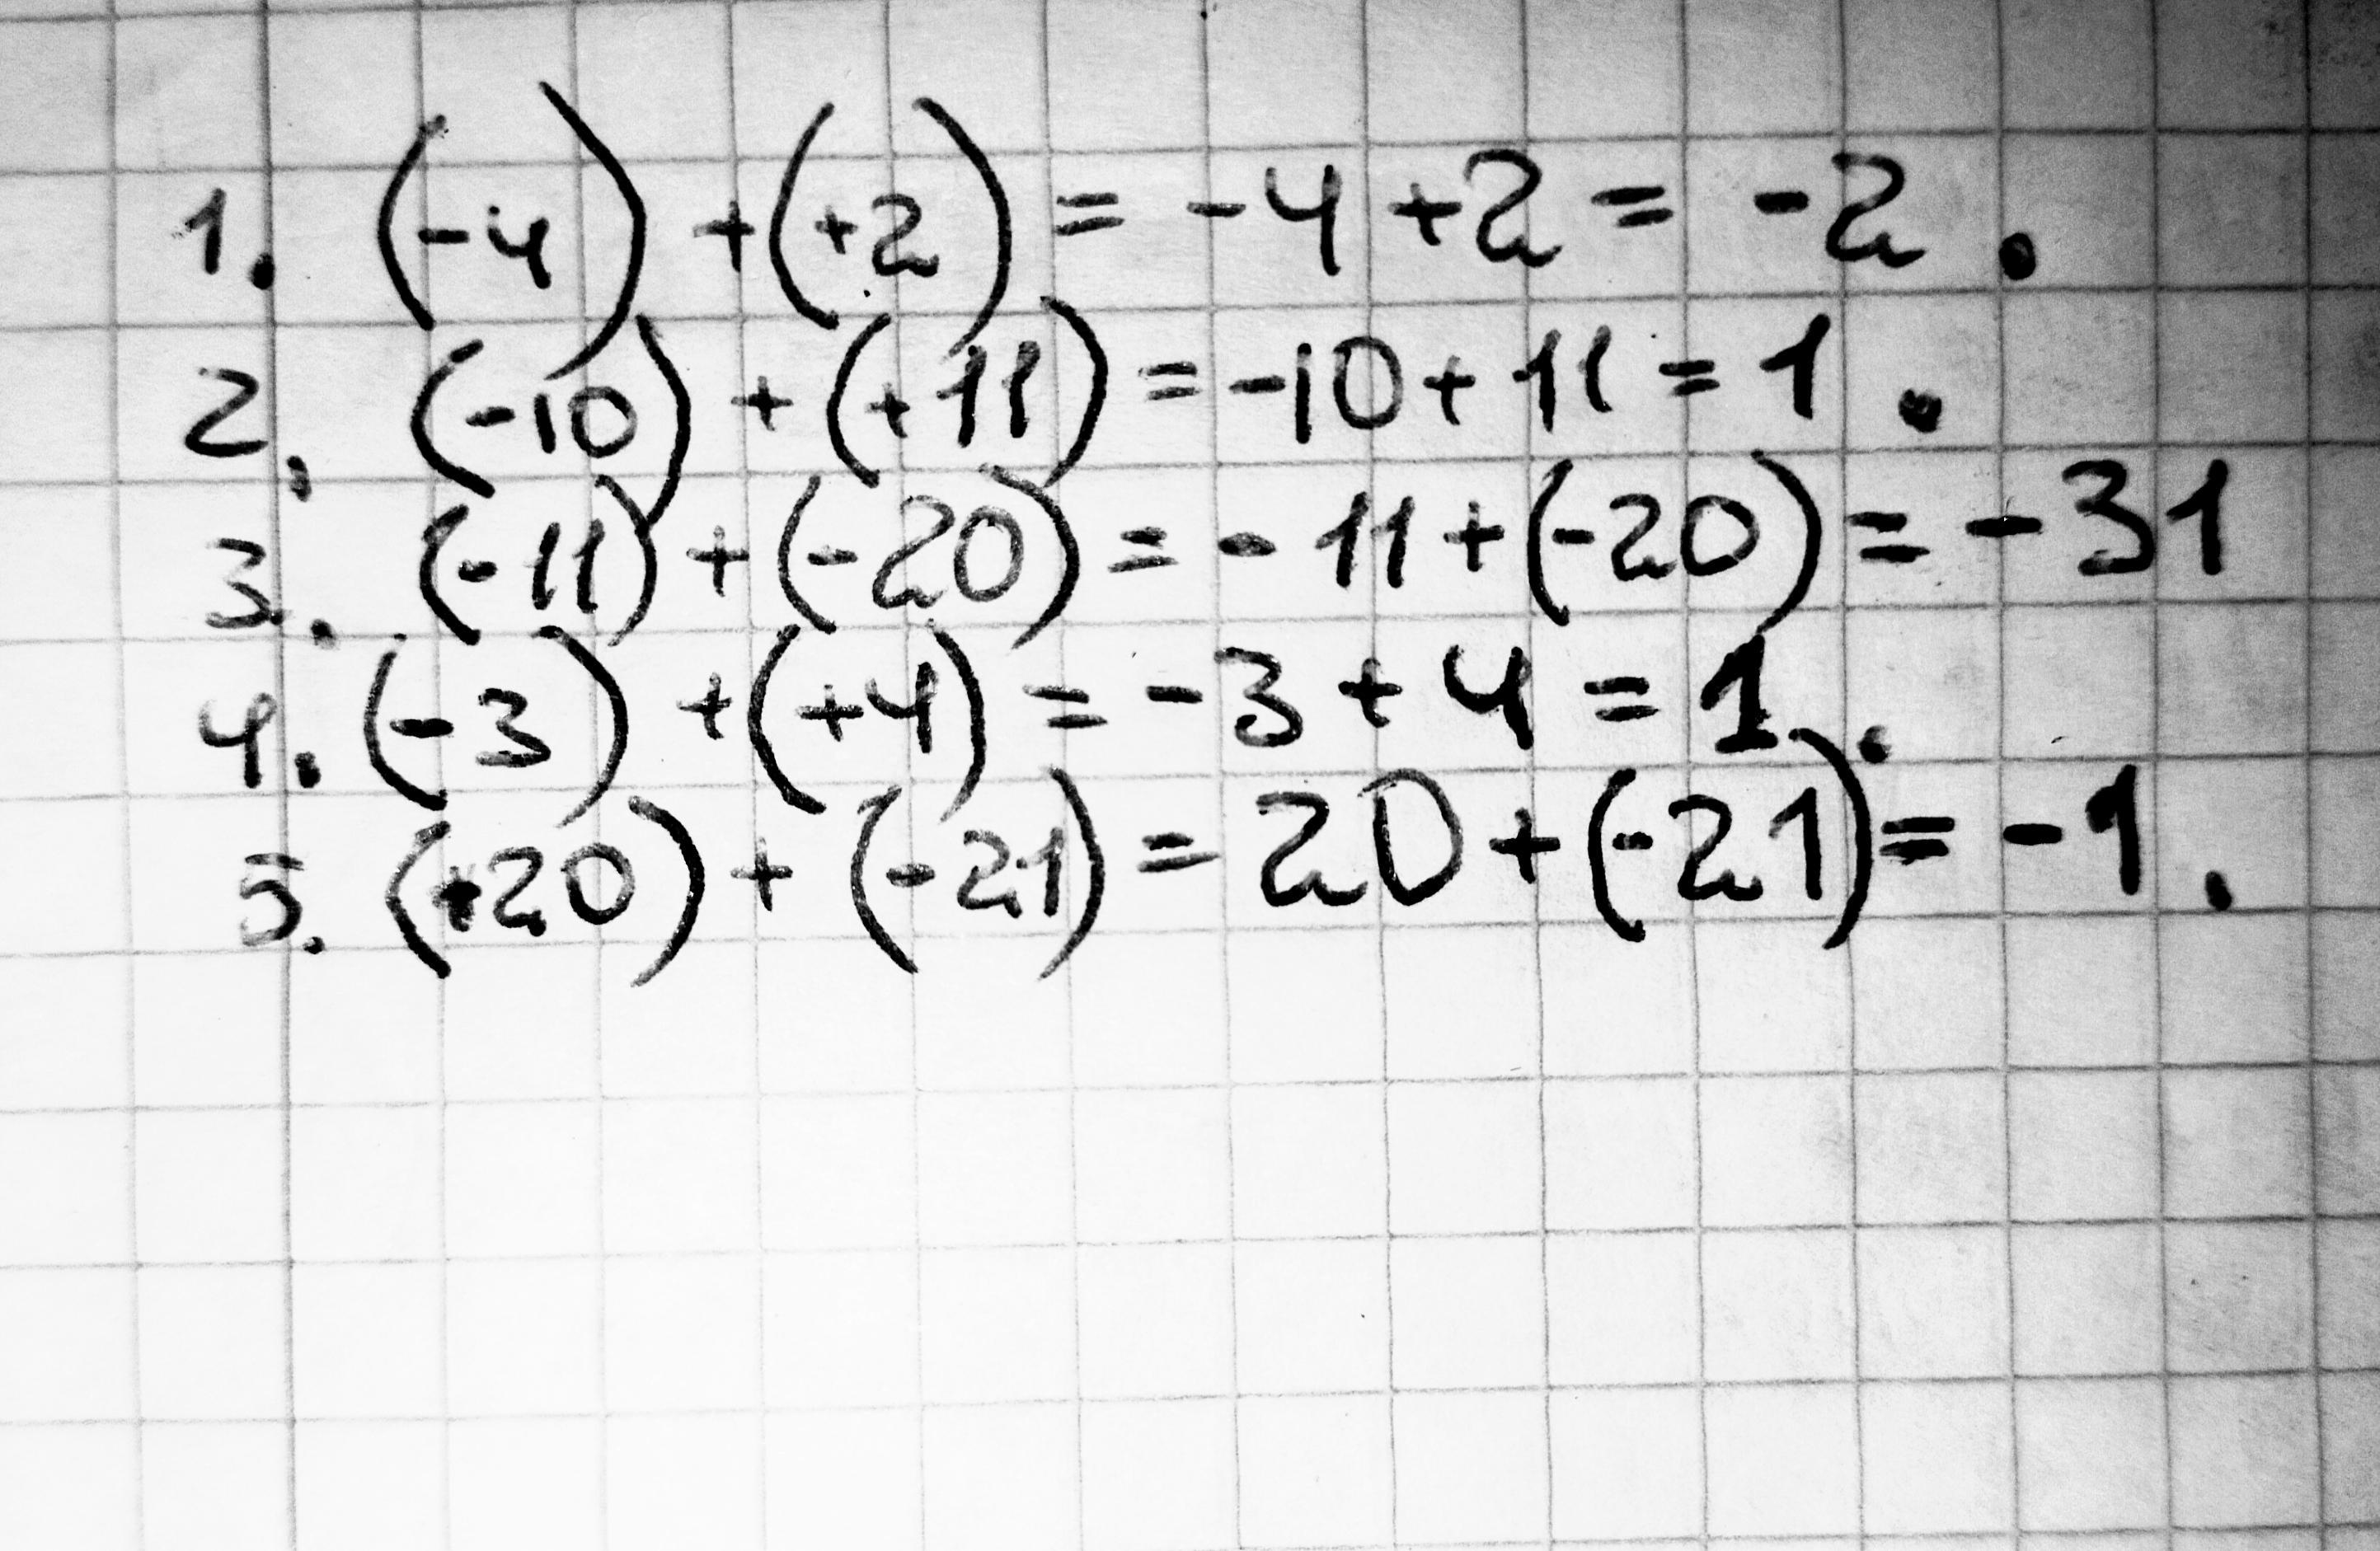 1. (-4) + (+2) = -4 + 2 = -2.
2. (-10) + (+11) = -10 + 11 = 1.
3. (-11) + (-20) = -11 + (-20) = -31
4. (-3) + (+4) = -3 + 4 = 1.
5. (+20) + (-21) = 20 + (-21) = -1.